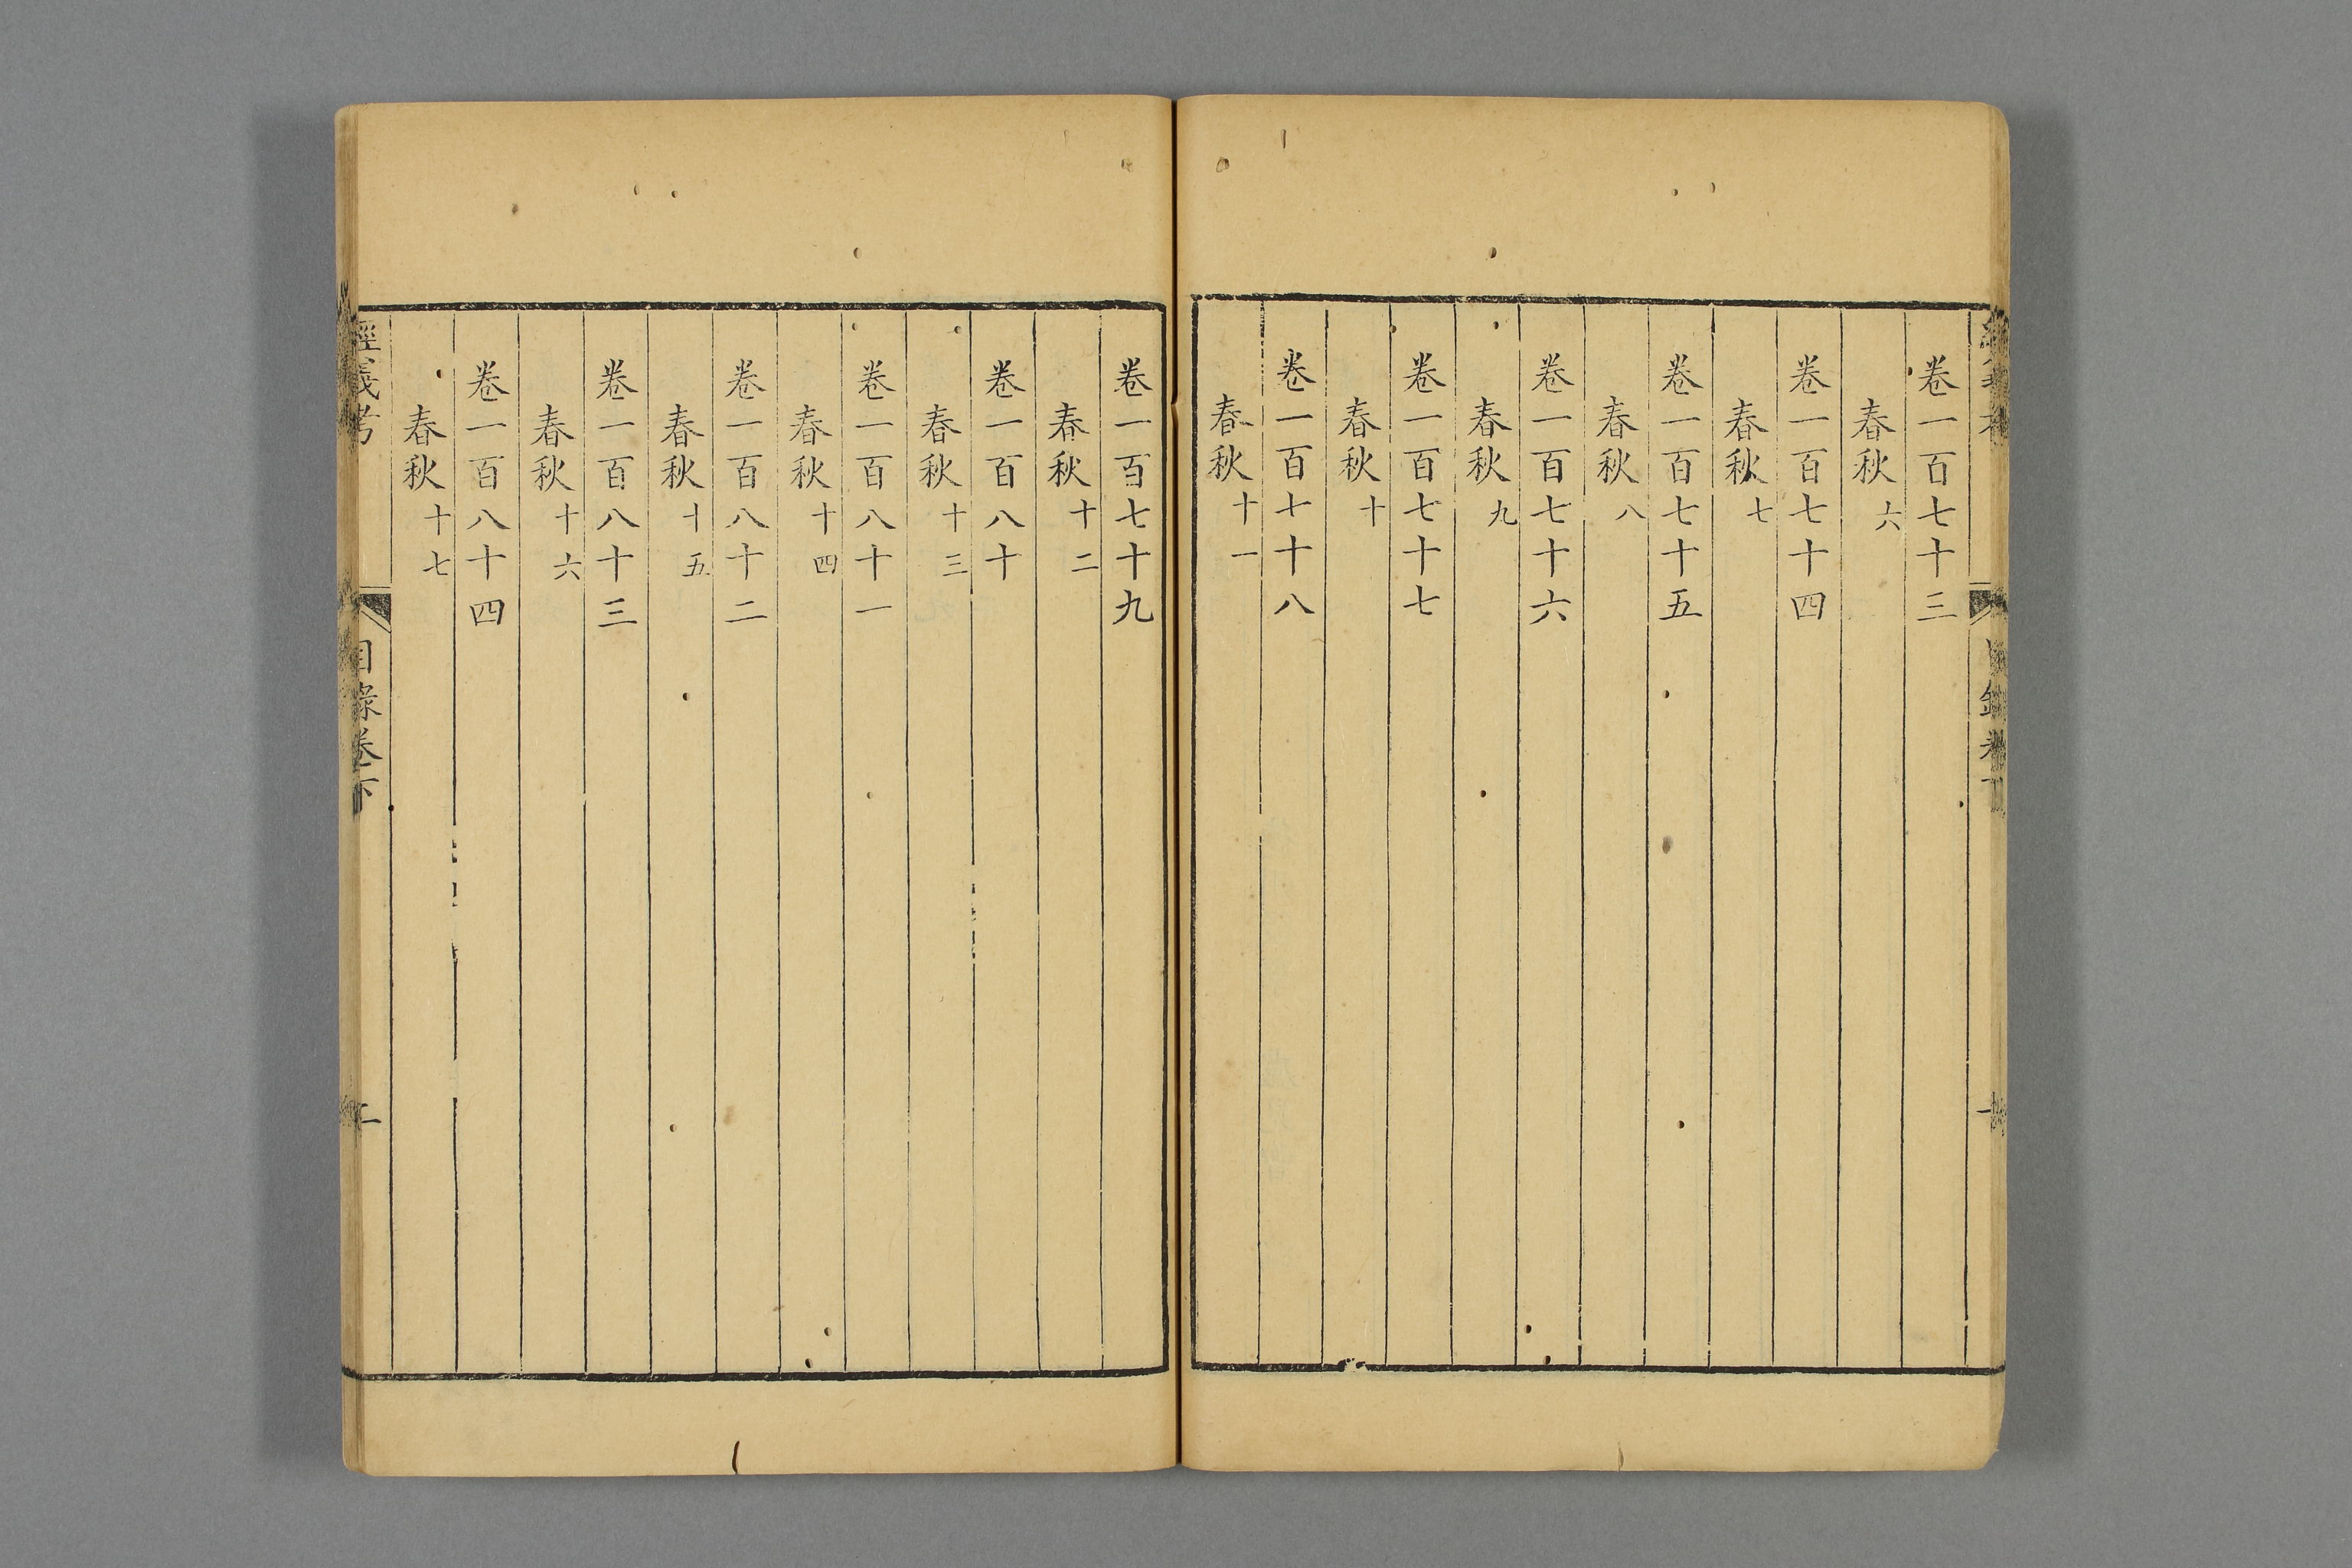 卷一百七十三
春秋六
卷一百七十四
春秋七
卷一百七十五
春秋八
卷一百七十六
春秋九
卷一百七十七
春秋十
卷一百七十八
春秋十一
卷一百七十九
春秋十二
卷一百八十
春秋十三
卷一百八十一
春秋十四
卷一百八十二
春秋十五
卷一百八十三
春秋十六
卷一百八十四
春秋十七
經義考
目錄卷下